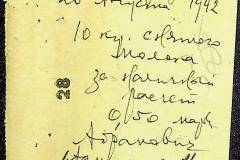 20 августа 1942
10 кг. снятого
молока
за наличный
расчет
0,50 марк
Абрамович
28